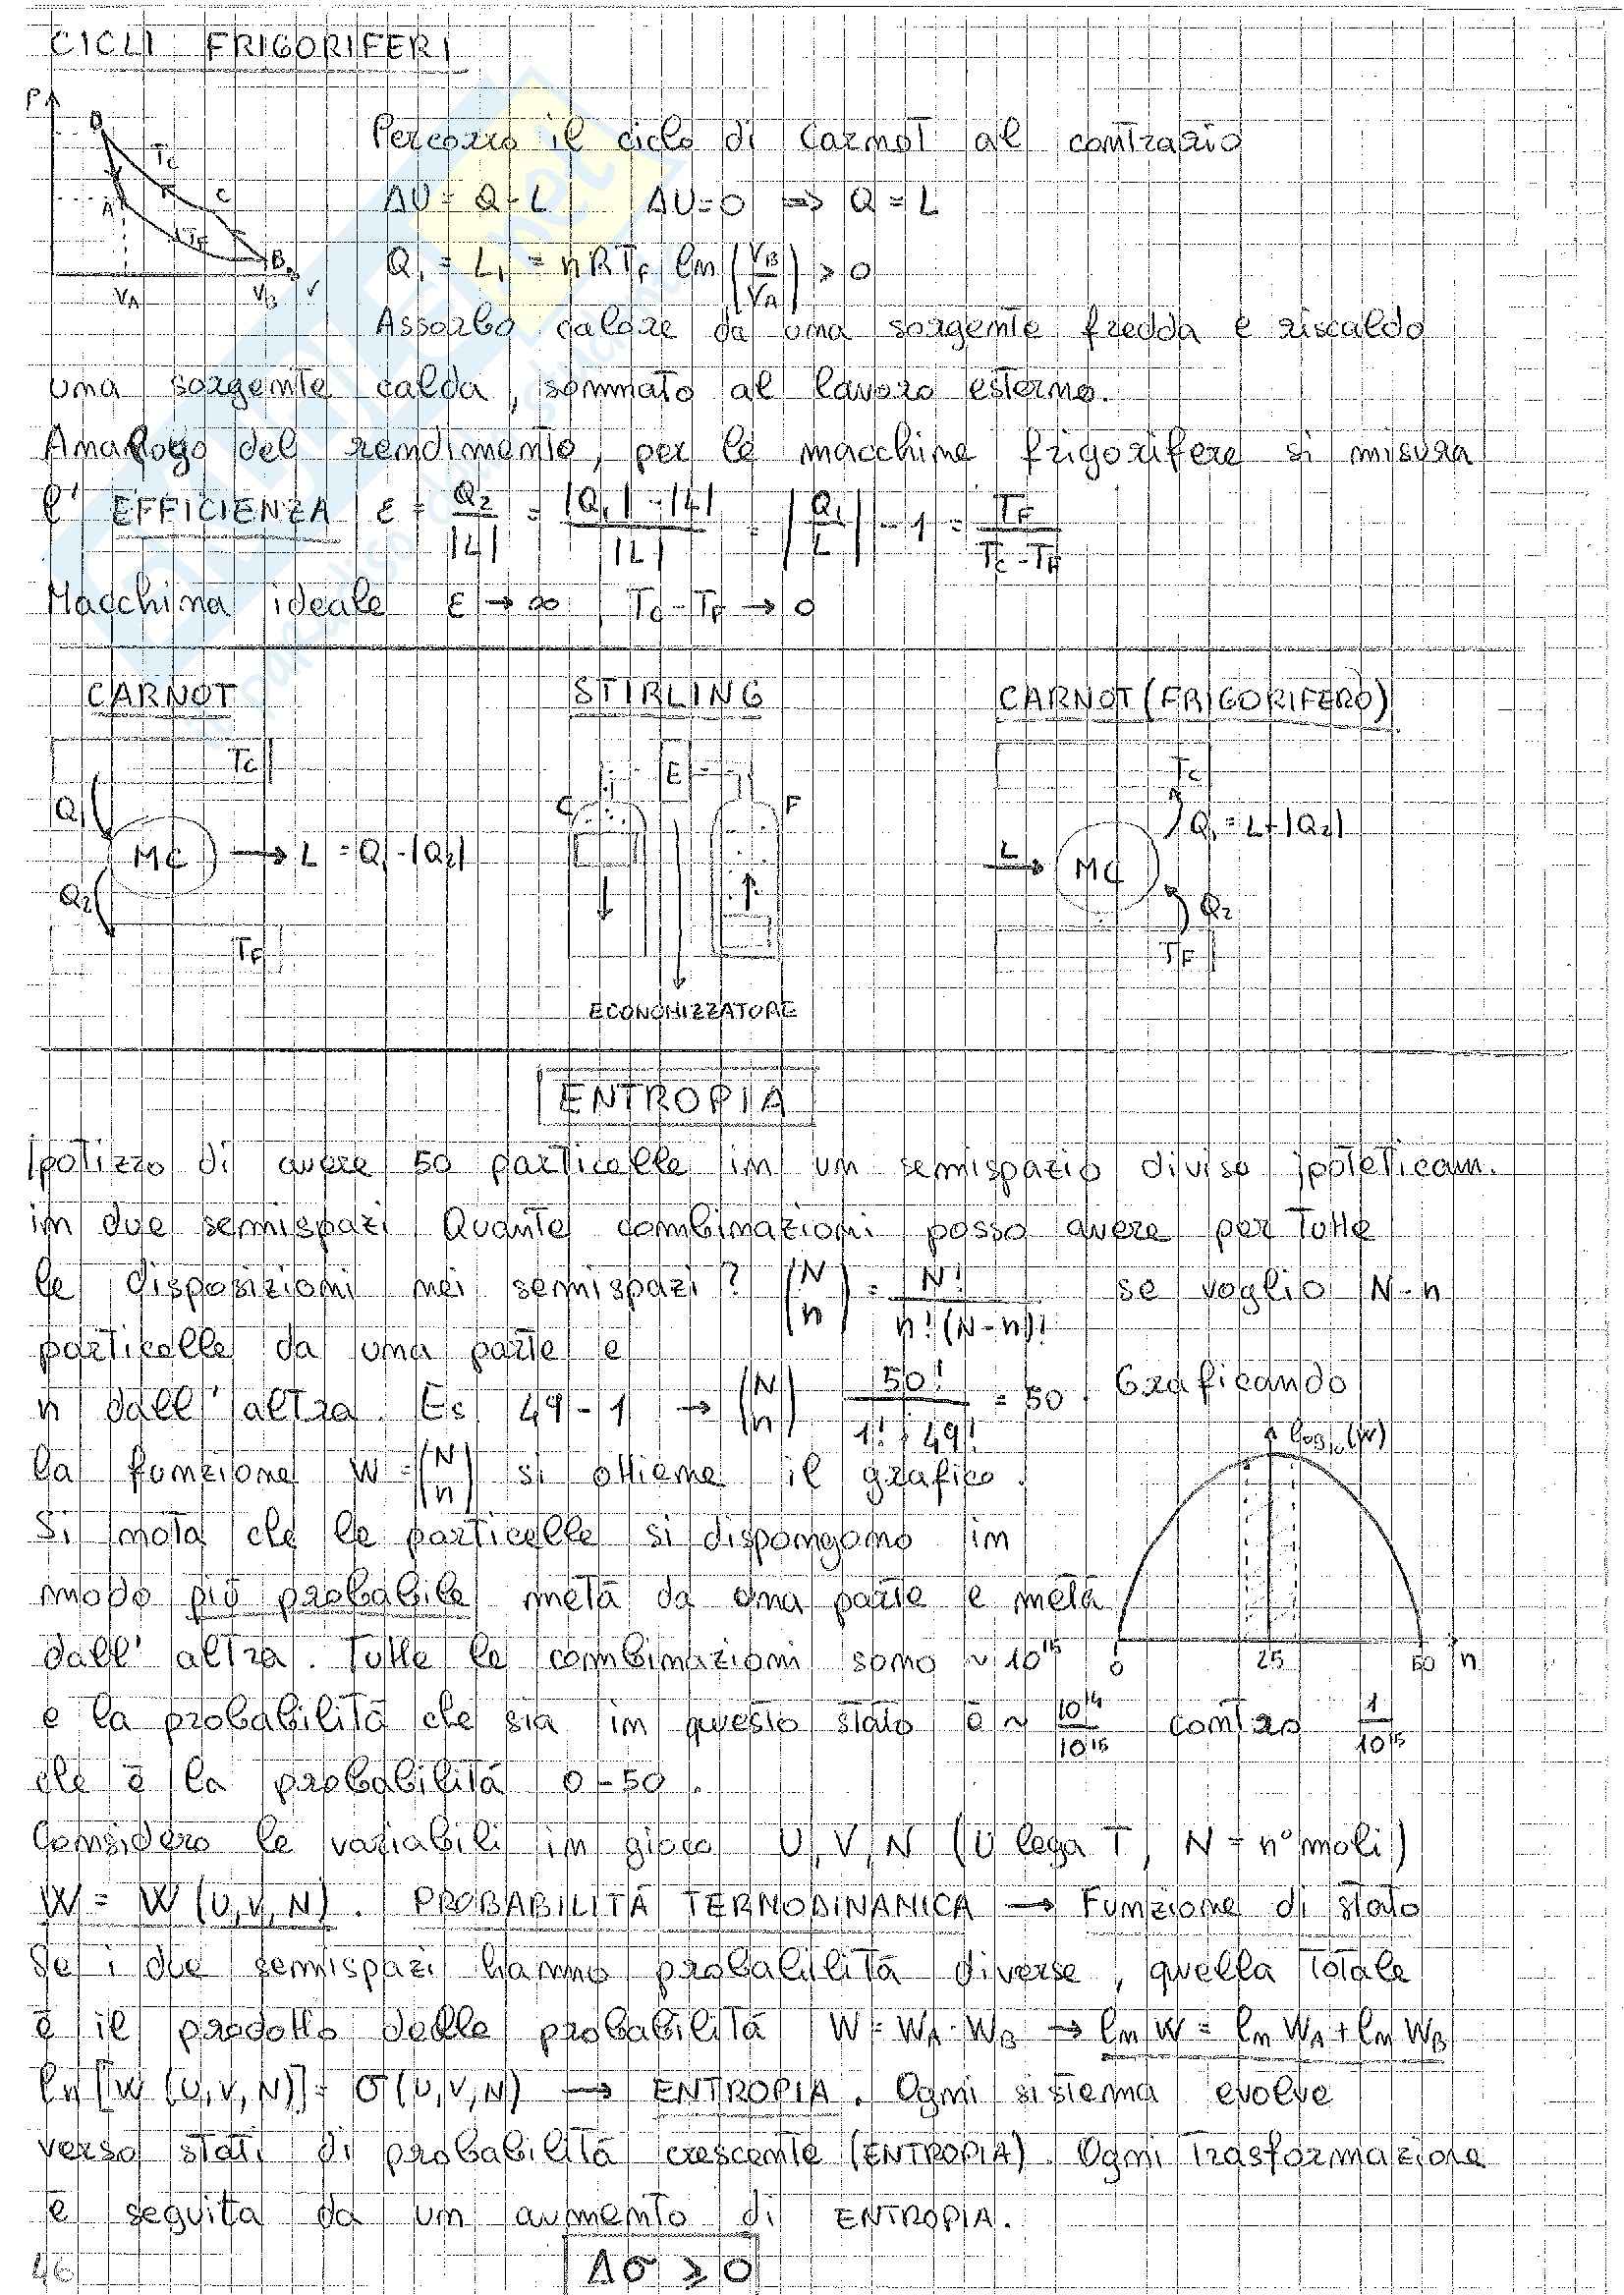 CICLI FRIGORIFERI
P
D
Tc
C
A
TF
B
VA VB V
Percorro il ciclo di Carnot al contrario
ΔU = Q - L ΔU = 0 ⇒ Q = L
Q₁ = L₁ = nRTF ln(VB/VA) > 0
Assorbo calore da una sorgente fredda e riscaldo
una sorgente calda, sommato al lavoro esterno.
Analogo del rendimento, per le macchine frigorifere si misura
l' EFFICIENZA ε = Q₂/|L| = (|Q₁| - |L|)/|L| = |Q₁/L| - 1 = TF/(Tc - TF)
Macchina ideale ε → ∞, Tc - TF → 0
CARNOT STIRLING CARNOT (FRIGORIFERO)
Tc E Tc
Q₁ C F Q₁ = L + |Q₂|
MC → L = Q₁ - |Q₂| L → MC
Q₂ Q₂
TF TF
ECONOMIZZATORE
ENTROPIA
Ipotizzo di avere 50 particelle in un semispazio diviso ipoteticam.
in due semispazi. Quante combinazioni posso avere per tutte
le disposizioni nei semispazi? (N n) = N!/(n!(N-n)!) se voglio N-n
particelle da una parte e
n dall' altra. Es 49-1 → (N n) 50!/(1! · 49!) = 50. Graficando
la funzione W = (N n) si ottiene il grafico.
log₁₀(W)
Si nota che le particelle si dispongono in
modo più probabile metà da una parte e metà
dall' altra. Tutte le combinazioni sono ~ 10¹⁵
0 25 50 n
e la probabilità che sia in questo stato è ~ 10¹⁴/10¹⁵ contro 1/10¹⁵
che è la probabilità 0-50.
Considero le variabili in gioco U, V, N (U lega T, N = n° moli)
W = W (U, V, N). PROBABILITÀ TERMODINAMICA → Funzione di stato
Se i due semispazi hanno probabilità diverse, quella totale
è il prodotto delle probabilità W = WA · WB → ln W = ln WA + ln WB
ln [W (U, V, N)] = σ(U, V, N) → ENTROPIA. Ogni sistema evolve
verso stati di probabilità crescente (ENTROPIA). Ogni trasformazione
è seguita da un aumento di ENTROPIA.
46
Δσ ≥ 0